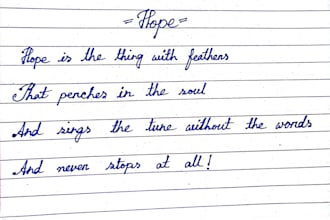 = Hope =
Hope is the thing with feathers
That perches in the soul
And sings the tune without the words
And never stops at all!